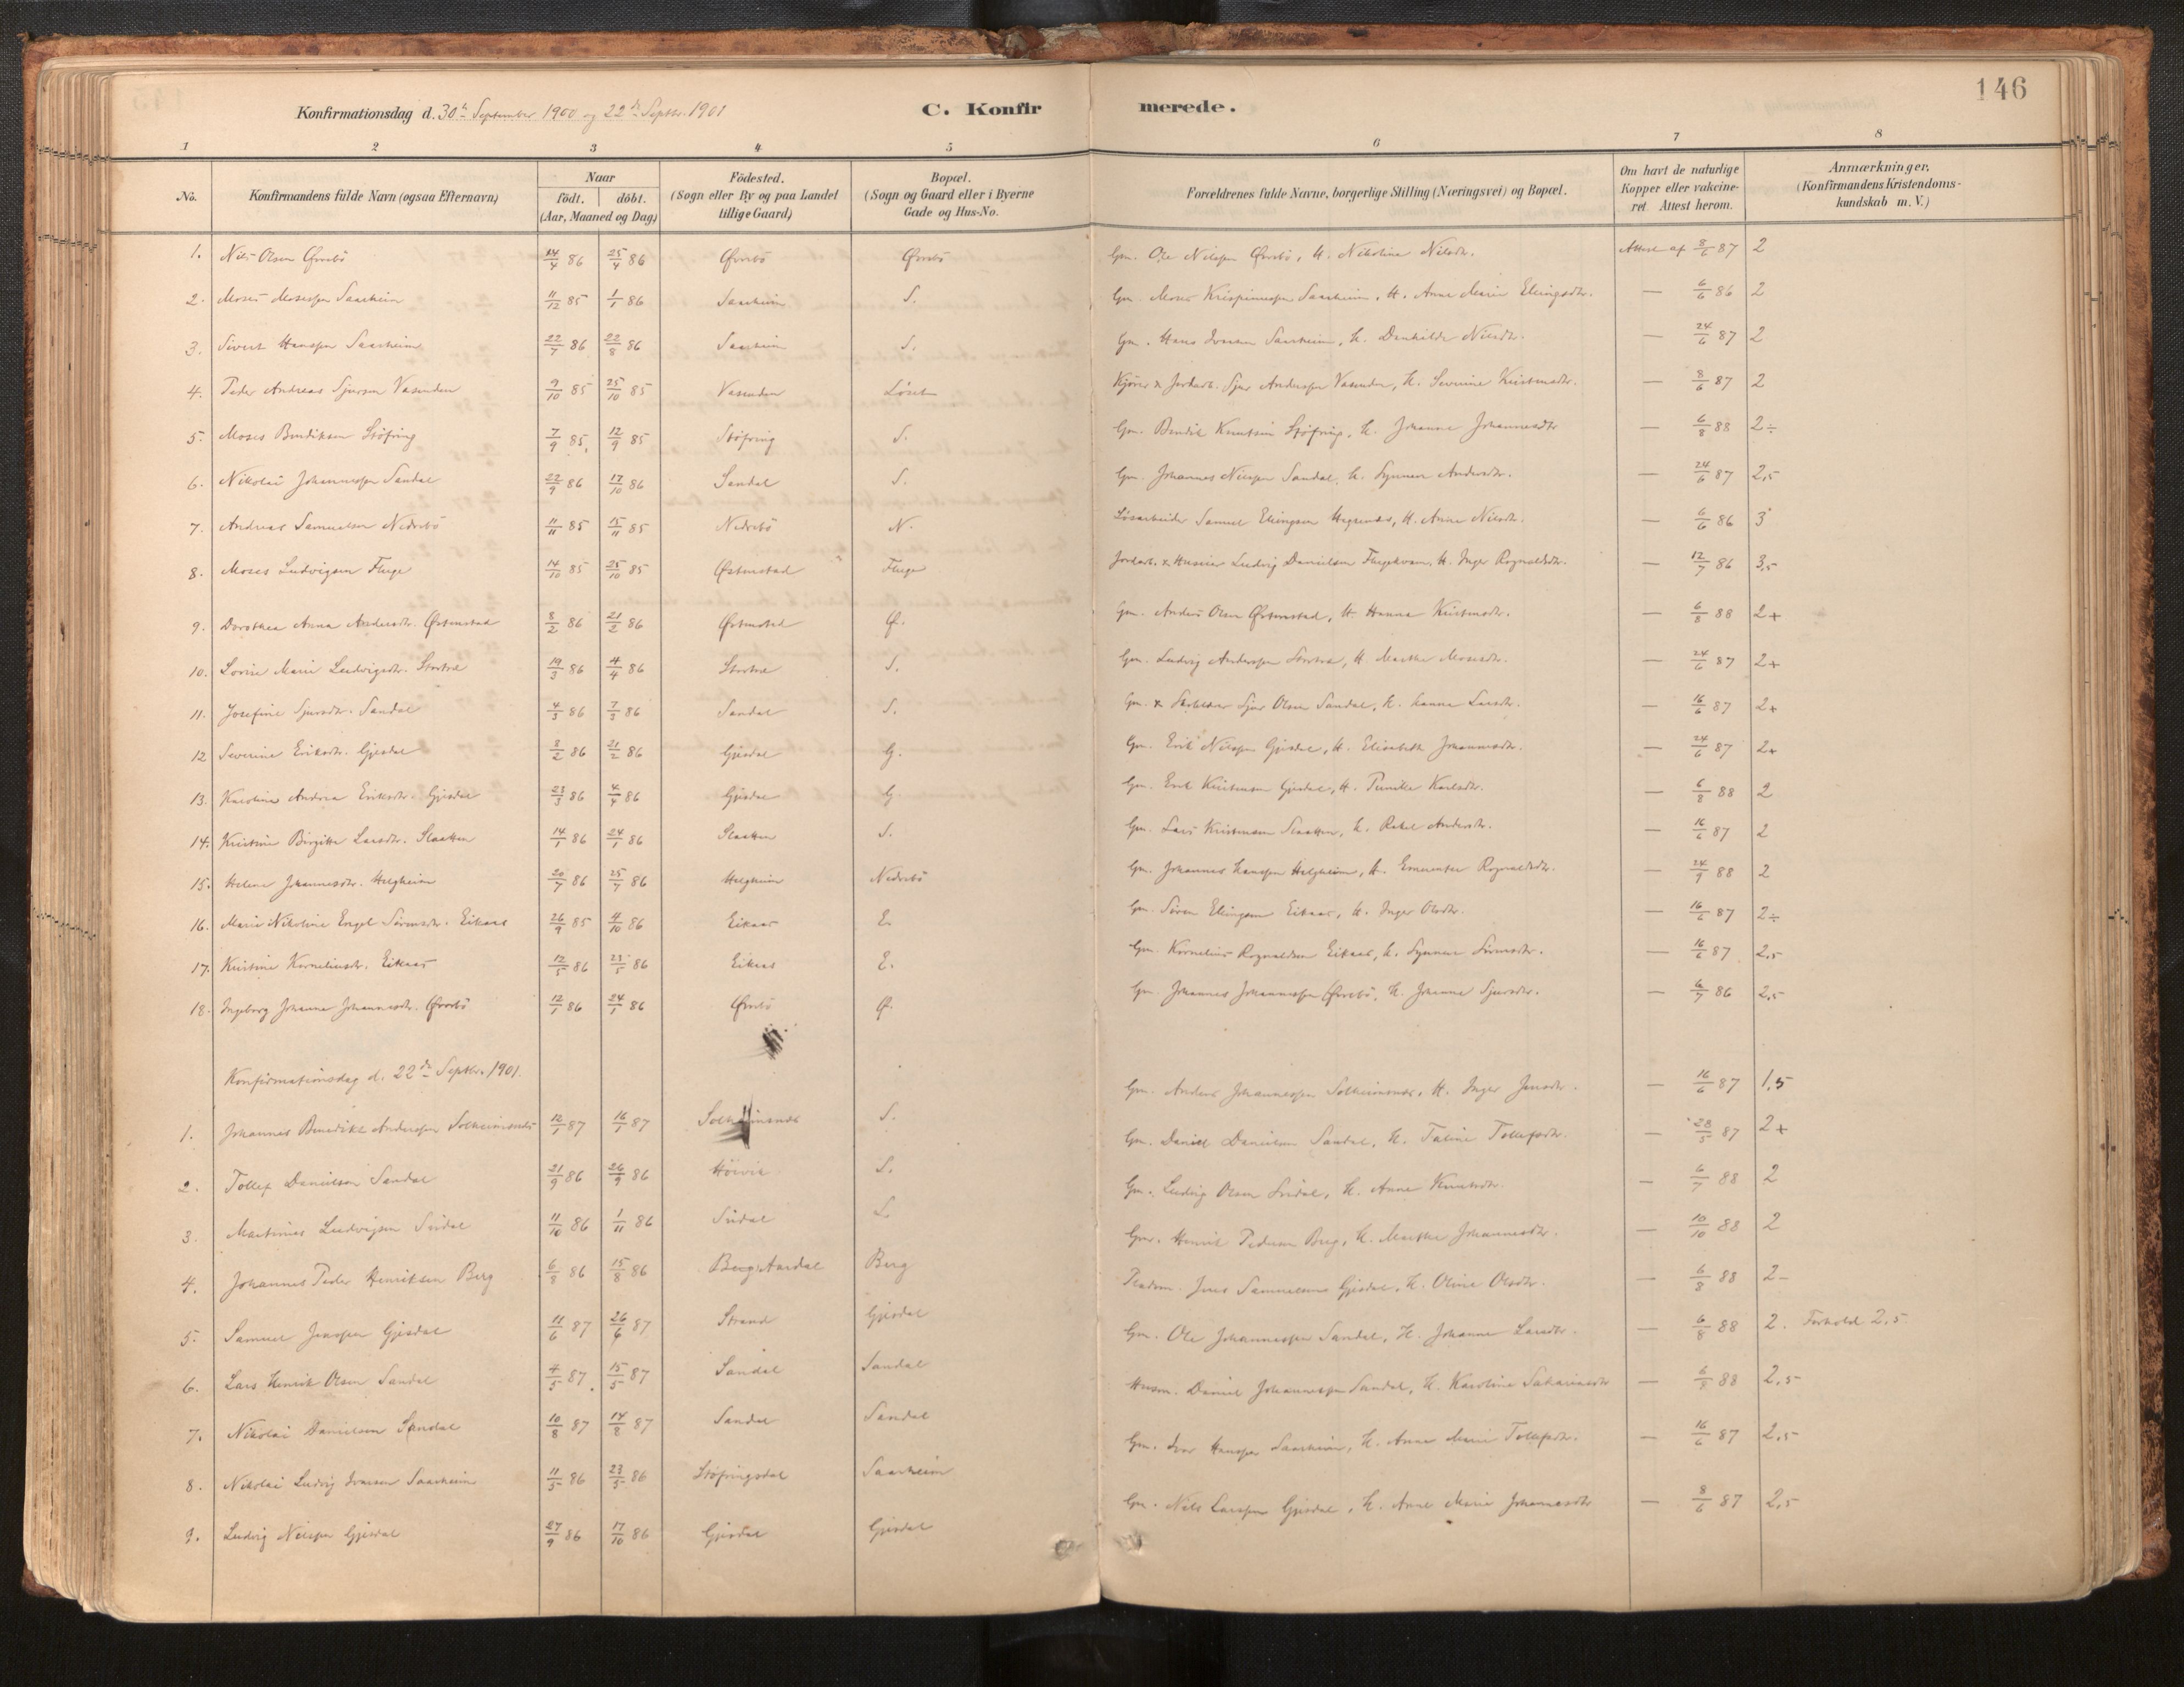 146
Konfirmationsdag d. 30te September 1900 og 22de Septbr. 1901
C. Konfirmerede.
1 2 3 4 5 6 7 8
No. Konfirmandens fulde Navn (ogsaa Efternavn) Naar födt. döbt. (Aar, Maaned og Dag) Födested. (Sogn eller By og paa Landet tillige Gaard) Bopæl. (Sogn og Gaard eller i Byerne Gade og Hus-No. Forældrenes fulde Navne, borgerlige Stilling (Næringsvei) og Bopæl. Om havt de naturlige Kopper eller vakcineret. Attest herom. Anmærkninger. (Konfirmandens Kristendomskundskab m. V.)
1. Nils Olsen Øvrebö 14/4 86 25/4 86 Øvrebö Øvrebö Gm. Ole Nilssen Øvrebö, H. Nikoline Nilsdr. Attest af 8/6 87 2
2. Moses Mosessen Saarheim 11/12 85 1/1 86 Saarheim S. Gm. Moses Krispinussen Saarheim, H. Anne Marie Elingsdtr. — 6/6 86 2
3. Sivert Hanssen Saarheim 22/7 86 22/8 86 Saarheim S. Gm. Hans Ivarsen Saarheim, H. Dankilde Nilsdtr. — 24/6 87 2
4. Peder Andreas Sjursen Vasenden 9/10 85 25/10 85 Vasenden Löset Kjører & Jordarb. Sjur Anderssen Vasenden, H. Severine Kristensdtr. — 8/6 87 2
5. Moses Bendiksen Støfring 7/9 85 12/9 85 Støfring S. Gm. Bendik Knutsen Støfring, H. Johanne Johannesdtr — 6/8 88 2÷
6. Nikolai Johannessen Sandal 22/9 86 17/10 86 Sandal S. Gm. Johannes Nilssen Sandal, H. Synneve Andersdtr. — 24/6 87 2,5
7. Andreas Samuelsen Nedrebö 11/11 85 15/11 85 Nedrebö N. Løsarbeider Samuel Elingsen Hegrenes, H. Anne Nilsdtr. — 6/6 86 3
8. Moses Ludvigsen Fluge 14/10 85 25/10 85 Østenstad Fluge Jordarb. & Husmr. Ludvig Danielsen Flugekvam, H. Inger Rognaldsdtr. — 12/7 86 3,5
9. Dorothea Anna Andersdtr. Østenstad 8/2 86 21/2 86 Østenstad Ø. Gm. Anders Olsen Østenstad, H. Hanna Kristensdtr. — 6/8 88 2+
10. Lovise Marie Ludvigsdtr. Stortræ 19/3 86 4/4 86 Stortræ S. Gm. Ludvig Anderssen Stortræ, H. Marthe Mosesdtr. — 24/6 87 2+
11. Josefine Sjursdtr. Sandal 4/3 86 7/3 86 Sandal S. Gm. & Sjur Olsen Sandal, H. Hanna Larsdtr. — 16/6 87 2+
12 Severine Eriksdtr. Gjesdal 8/2 86 21/2 86 Gjesdal G. Gm. Erik Nilssen Gjesdal, H. Elisabeth Johannesdtr. — 24/6 87 2+
13. Karoline Andrea Eriksdtr. Gjesdal 23/3 86 4/4 86 Gjesdal G. Gm. Erik Kristensen Gjesdal, H. Pernille Karlsdtr. — 6/8 88 2
14. Kristine Birgitte Larsdtr. Slaatten 14/1 86 24/1 86 Slaatten S. Gm. Lars Kristensen Slaatten, H. Rakel Andersdtr. — 16/6 87 2
15. Helene Johannesdtr. Helgheim 20/7 86 25/7 86 Helgheim Nedrebö Gm. Johannes Hanssen Helgheim, H. Rognaldsdtr. — 24/9 88 2
16. Marie Nikoline Engel Sörensdtr. Eikaas 26/9 85 4/10 86 Eikaas E. Gm. Sören Elingsen Eikaas, H. Inger Olsdtr. — 16/6 87 2÷
17. Kristine Korneliusdtr. Eikaas 12/5 86 23/5 86 Eikaas E. Gm. Kornelius Rognaldsen Eikaas, H. Synneve Sörensdtr. — 16/6 87 2,5
18. Ingeborg Johanne Johannesdtr. Øvrebö 12/1 86 24/1 86 Øvrebö Ø. Gm. Johannes Johannessen Øvrebö, H. Johanne Sjursdtr. — 6/7 86 2,5
Konfirmationsdag d. 22de Septbr. 1901.
1. Johannes Benedikt Anderssen Solheimsnes 12/1 87 16/1 87 Solheimsnes S. Gm. Anders Johannessen Solheimsnes, H. Inger Jensdtr. — 16/6 87 1,5
2. Tollef Danielsen Sandal 21/9 86 26/9 86 Höivik S. Gm. Daniel Danielsen Sandal, H. Taline Tollefsdtr. — 23/5 87 2+
3. Martinus Ludvigsen Svidal 11/10 86 1/11 86 Svidal S. Gm. Ludvig Olsen Svidal, H. Anne Knutsdtr. — 6/7 88 2
4. Johannes Peder Henriksen Berg 6/8 86 15/8 86 Berg, Aardal Berg Gmr. Henrik Pedersen Berg, H. Marthe Johannesdtr. — 10/10 88 2
5. Samuel Jenssen Gjesdal 11/6 87 26/6 87 Strand Gjesdal Pladsm. Jens Samuelsen Gjesdal, H. Oline Olsdtr. — 6/8 88 2-
6. Lars Henrik Olsen Sandal 4/5 87 15/5 87 Sandal Sandal Gm. Ole Johannessen Sandal, H. Johanne Larsdtr. — 6/8 88 2. Forhold 2,5
7. Nikolai Danielsen Sandal 10/8 87 14/8 87 Sandal Sandal Husm. Daniel Johannessen Sandal, H. Karoline Sakariasdtr — 6/8 88 2,5
8. Nikolai Ludvig Ivarsen Saarheim 11/5 86 23/5 86 Støfringsdal Saarheim Gm. Ivar Hanssen Saarheim, H. Anne Marie Tollefsdtr. — 16/6 87 2,5
9. Ludvig Nilssen Gjesdal 27/9 86 17/10 86 Gjesdal Gjesdal Gm. Nils Larssen Gjesdal, H. Anne Marie Johannesdtr — 8/6 87 2,5